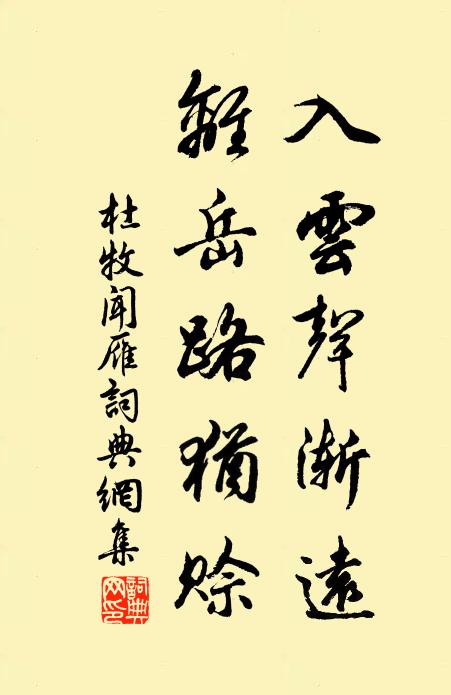 入雲聲漸遠
離岳路猶賒
杜牧聞雁詞典網集
詞典
网印